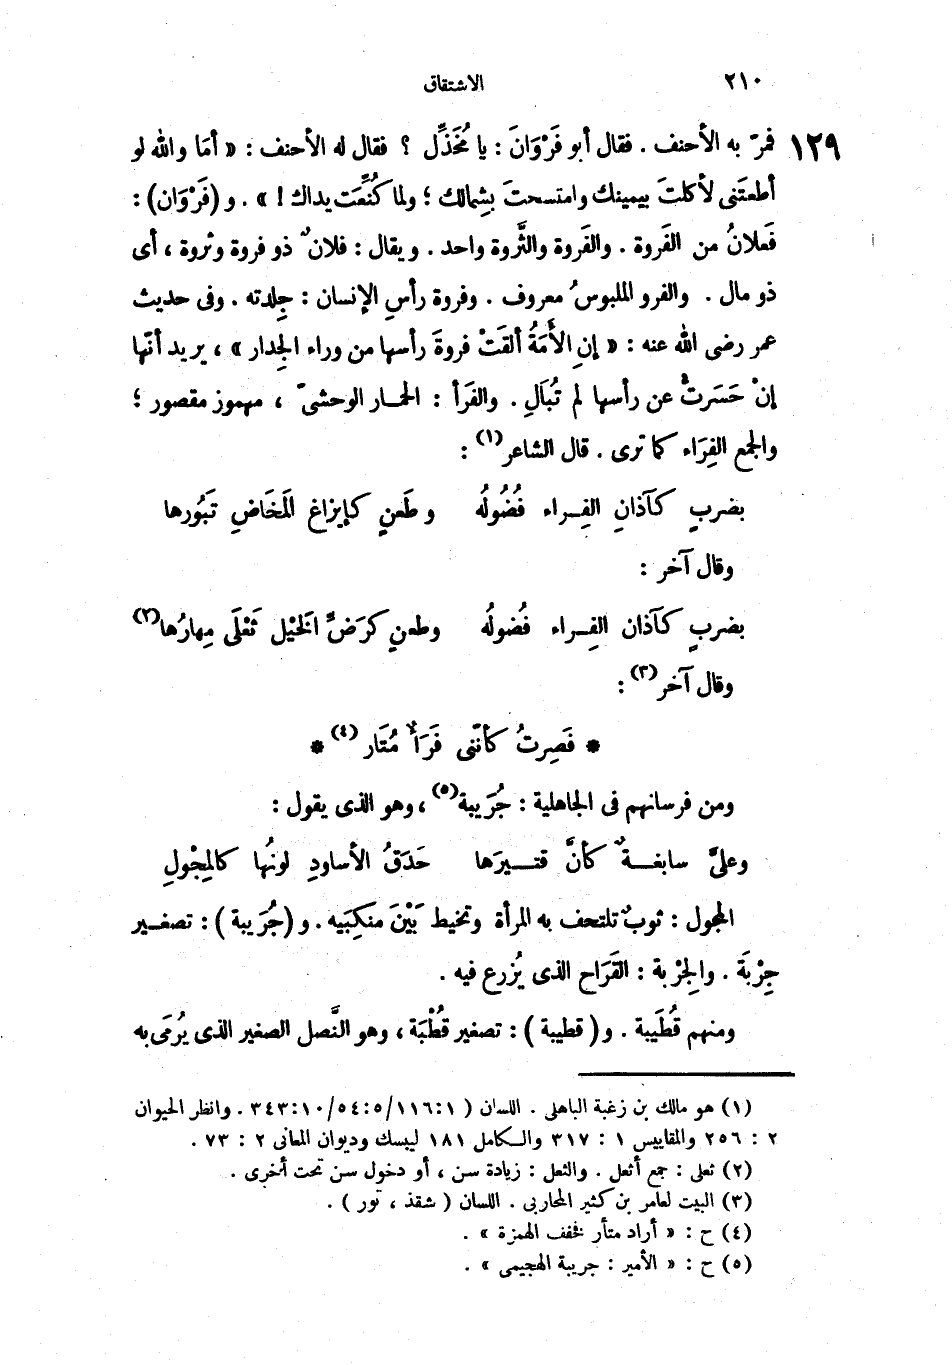 ٢١٠ الاشتقاق
١٢٩ فمرّ به الأحنف . فقال أبو فَرْوَانَ : يا مُخَذِّل ؟ فقال له الأحنف : « أمَا والله لو
أطعتَنى لأكلتَ بيمينك وامتسحتَ بشِمالك ؛ ولما كُنِّعَت يداك ! » . و (فَرْوَان) :
فَعلانُ من الفَروة . والفَروة والثَّروة واحد . ويقال : فلانٌ ذو فروة وثروة ، أى
ذو مال . والفرو الملبوسُ معروف . وفروة رأسِ الإنسان : جِلدته . وفى حديث
عمر رضى الله عنه : « إن الأَمَةُ ألقَتْ فروةَ رأسها من وراء الجِدار » ، يريد أنّها
إنْ حَسَرتْ عن رأسها لم تُبَالِ . والفَرأ : الحمـار الوحشىّ ، مهموز مقصور ؛
والجمع الفِرَاء كما ترى . قال الشاعر(١) :
بضربٍ كآذانِ الفِـراء فُضُولُه وطَعنٍ كإيزاغِ المَخَاضِ تَبُورها
وقال آخر :
بضربٍ كآذان الفِـراء فُضولُه وطعنٍ كرَضِّ الخَيْل ثَعْلَى مِهارُها(٢)
وقال آخر(٣) :
* فَصِرتُ كأنّنى فَرَأٌ مُتَار(٤) *
ومن فرسانهم فى الجاهلية : جُرَيبة(٥) ، وهو الذى يقول :
وعلىَّ سابغـةٌ كأنَّ قتـيرَها حَدَقُ الأساودِ لونُها كالمِجْولِ
المجول : ثوبٌ تلتحف به المرأة وتخيط بَيْنَ منكِبَيه . و (جُرَيبة) : تصغـير
جِرْبَة . والجِرْبة : القَرَاح الذى يُزرع فيه .
ومنهم قُطَيبة . و ( قطيبة ) : تصغير قُطْبَة ، وهو النَّصل الصغير الذى يُرمَى به
(١) هو مالك بن زغبة الباهلى . اللسان ( ١ : ١١٦ / ٥ : ٥٤ / ١٠ : ٣٤٣ . وانظر الحيوان
٢ : ٢٥٦ والمقاييس ١ : ٣١٧ والـكامل ١٨١ ليبسك وديوان المعانى ٢ : ٧٣ .
(٢) ثعلى : جمع أثعل . والثعل : زيادة سن ، أو دخول سن تحت أخرى .
(٣) البيت لعامر بن كثير المحاربى . اللسان ( شقذ ، تور ) .
(٤) ح : « أراد متأر فخفف الهمزة » .
(٥) ح : « الأمير : جريبة الهجيمى » .